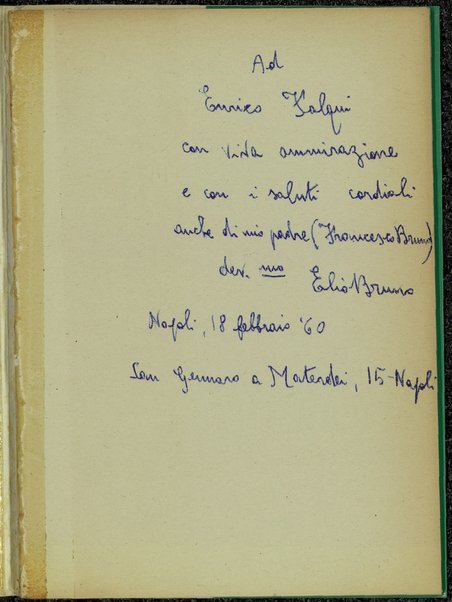 Ad
Enrico Falqui
con viva ammirazione
e con i saluti cordiali
anche di mio padre (Francesco Bruno)
dev. mo Elio Bruno
Napoli, 18 febbraio '60
San Gennaro a Materdei, 15-Napoli